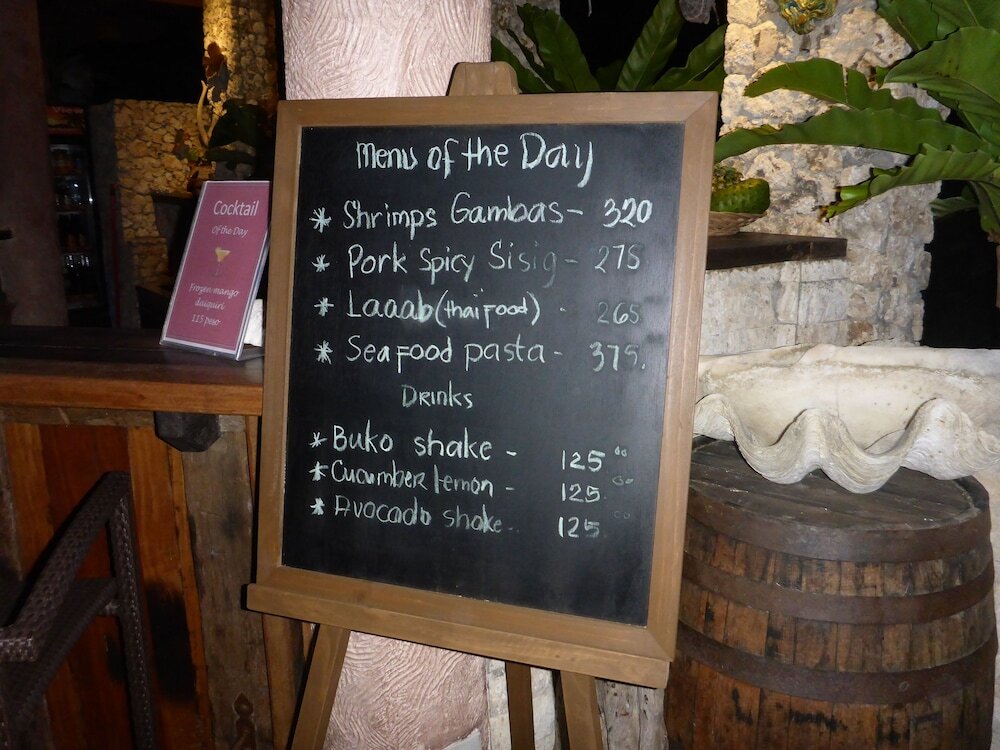 Menu of the Day
* Shrimps Gambas - 320
* Pork Spicy Sisig - 275
* Laaab (thai food) - 265
* Seafood pasta - 375.
Drinks
* Buko shake - 125.00
* Cucumber lemon - 125.00
* Avocado shake - 125.00
Cocktail
Of the Day
Frozen mango
daiquiri
115 peso